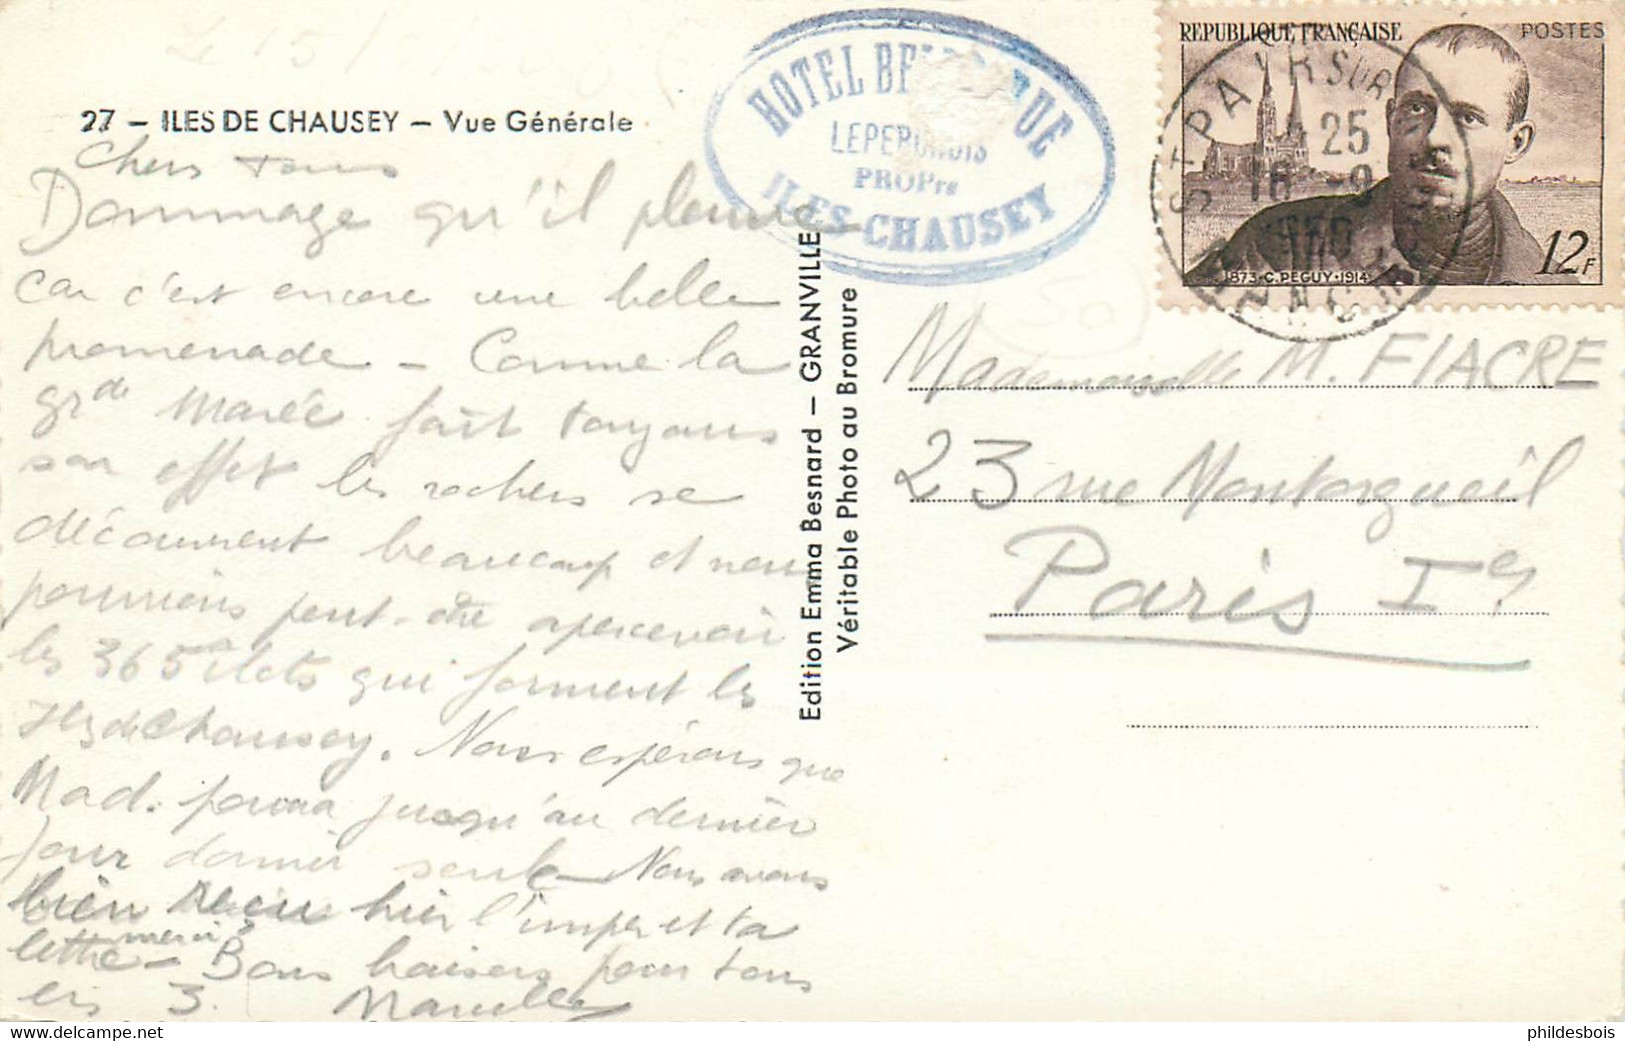 27 – ILES DE CHAUSEY – Vue Générale
Chers tous
Dommage qu'il pleuve
car c'est encore une belle
promenade – Comme la
grde Marée fait toujours
son effet les rochers se
découvrent beaucoup et nous
pourrions peut-être apercevoir
les 365 ilots qui forment les
Iles de Chausey. Nous espérons que
Mad. pourra jusqu'au dernier
jour dormir seule – Nous avons
bien reçu hier l'imper et ta
lettre – merci Bons baisers pour tous
les 3. Marcelle
HOTEL BE UE
LEPE
PROPre
ILES-CHAUSEY
Edition Emma Besnard – GRANVILLE
Véritable Photo au Bromure
REPUBLIQUE FRANÇAISE
POSTES
1873·C.PEGUY·1914
12F
ST PAIR SUR
25
16 -9
1950
MANCHE
Mademoiselle M. FIACRE
23 rue Montorgueil
Paris Ier
phildesbois